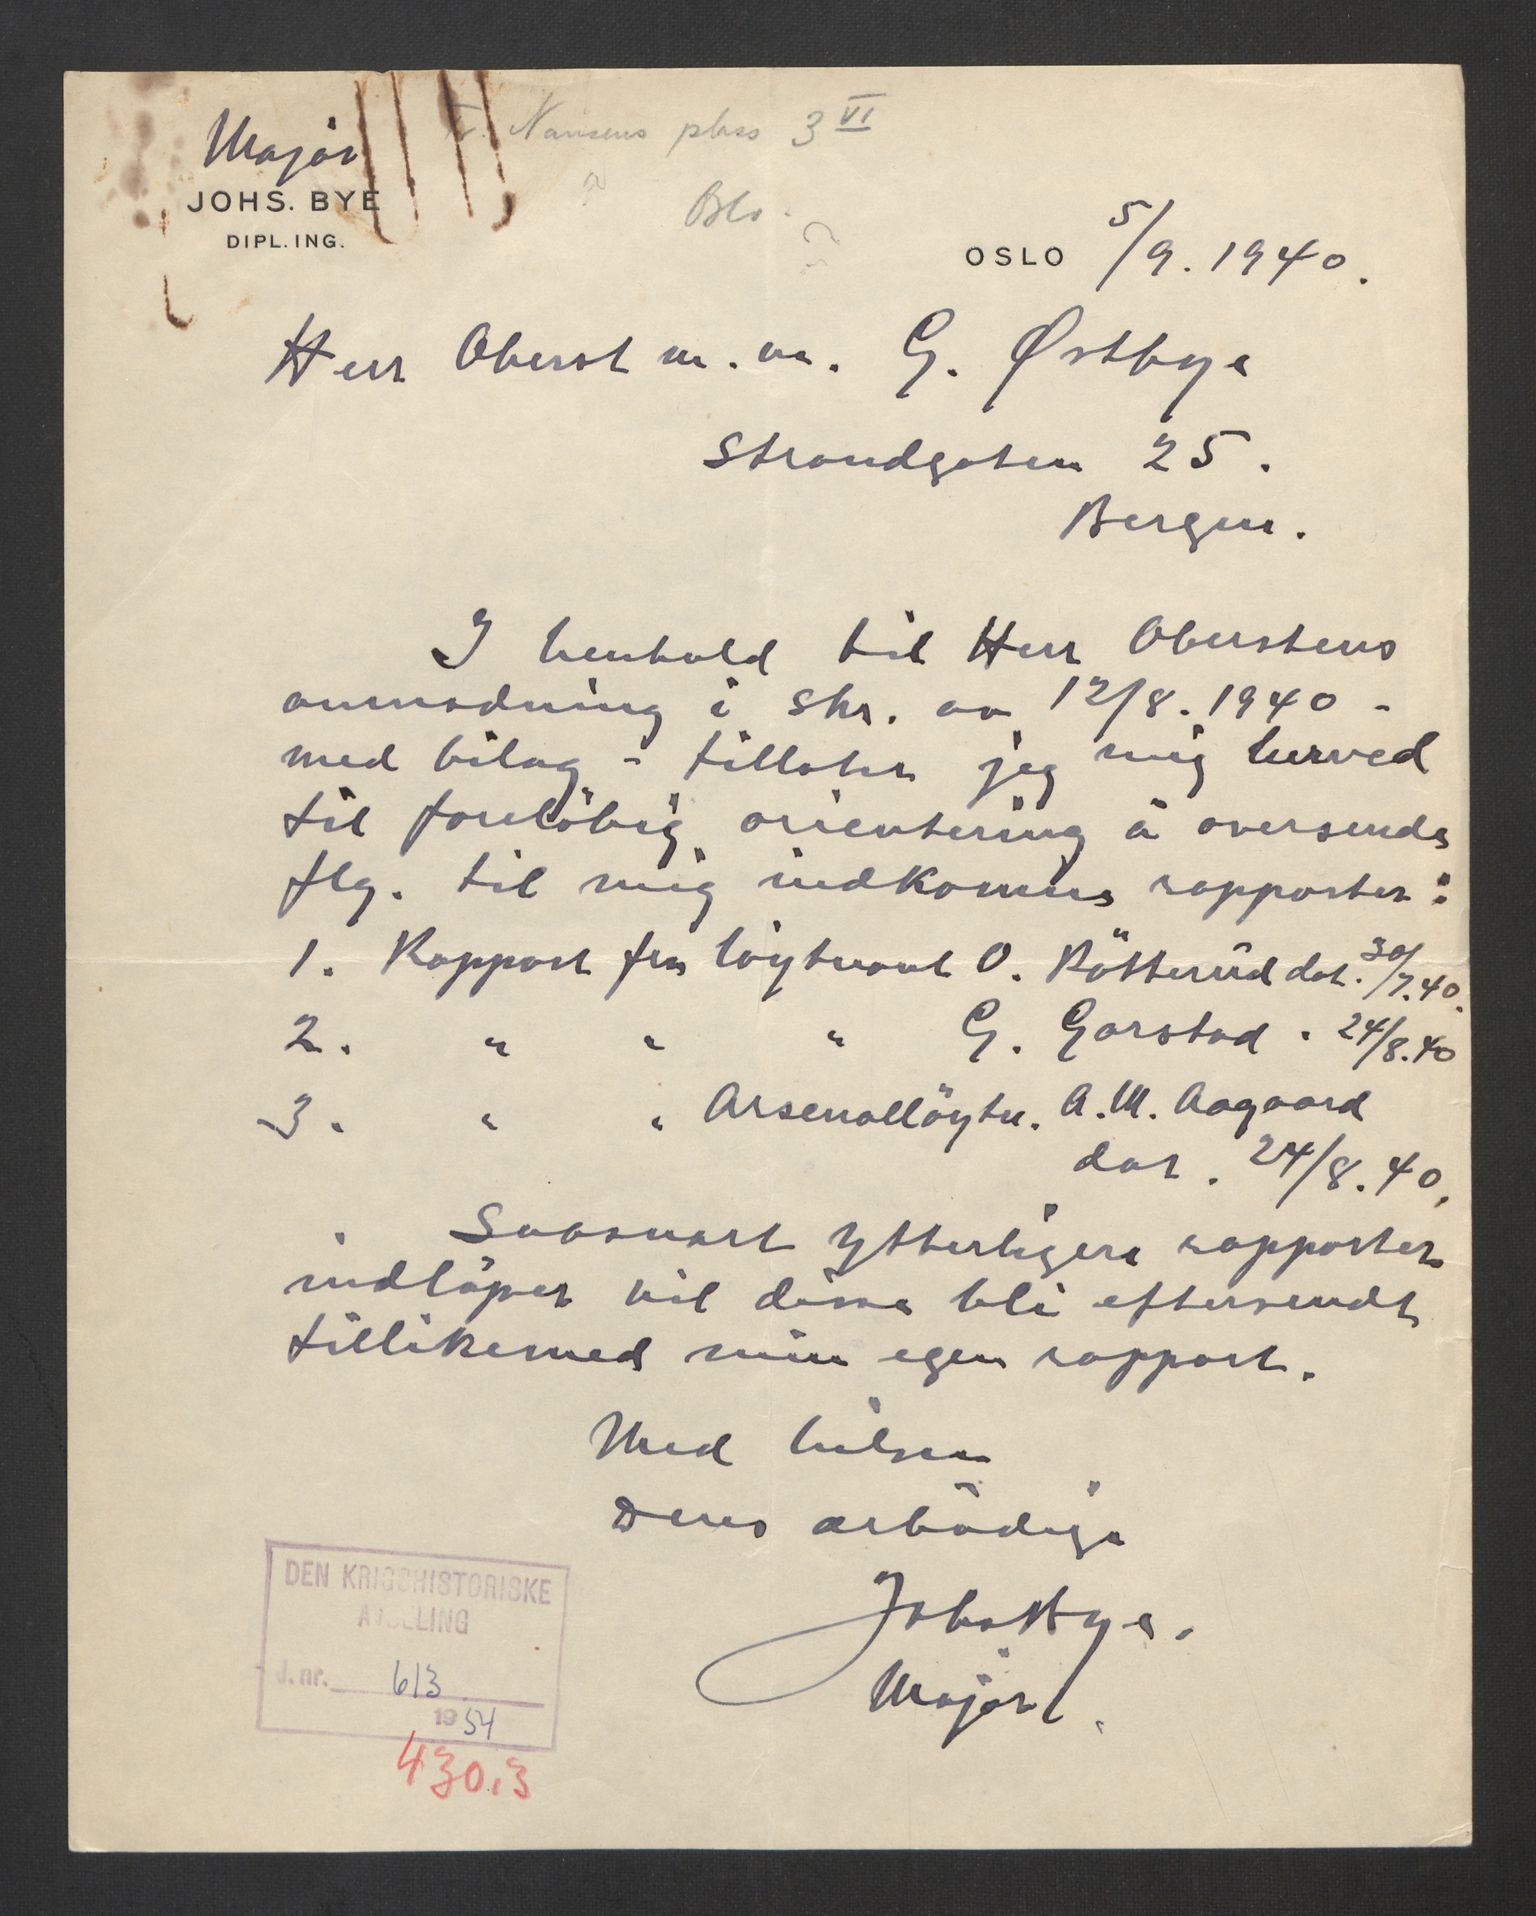 Fr. Nansens plass 3 VI
Major
JOHS. BYE
DIPL. ING.
OSLO 5/9. 1940.
Herr Oberst m. m. G. Østbye
Strandgaten 25.
Bergen.
I henhold til Herr Oberstens
anmodning i skr. av 12/8. 1940 -
med bilag - tillater jeg mig herved
til foreløbig orientering å oversende
flg. til mig indkomne rapporter:
1. Rapport fra löytnant O. Rötterüd dat. 30/7.40.
2. " " " G. Garstad " 24/8.40
3. " " Arsenallöytn. A. M. Aagaard
dat. 24/8.40.
Saasnart ytterligere rapporter
indlöper vil disse bli eftersendt
tillikemed min egen rapport.
Med hilsen
Deres ærbödige
Johs Bye.
Major.
DEN KRIGSHISTORISKE
AVDELING
J. nr. 613
1954
430.3